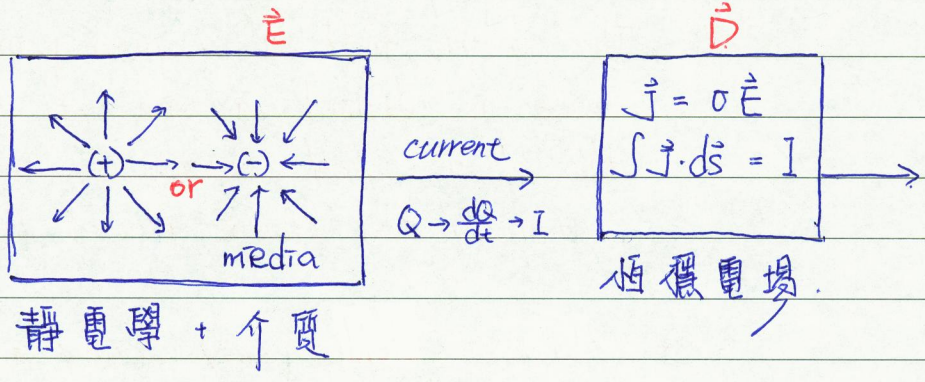 E⃗
(+) or (-)
media
靜電學 + 介質
current
Q → dQ/dt → I
D⃗
J⃗ = σE⃗
∫ J⃗·ds⃗ = I
恒穩電場.